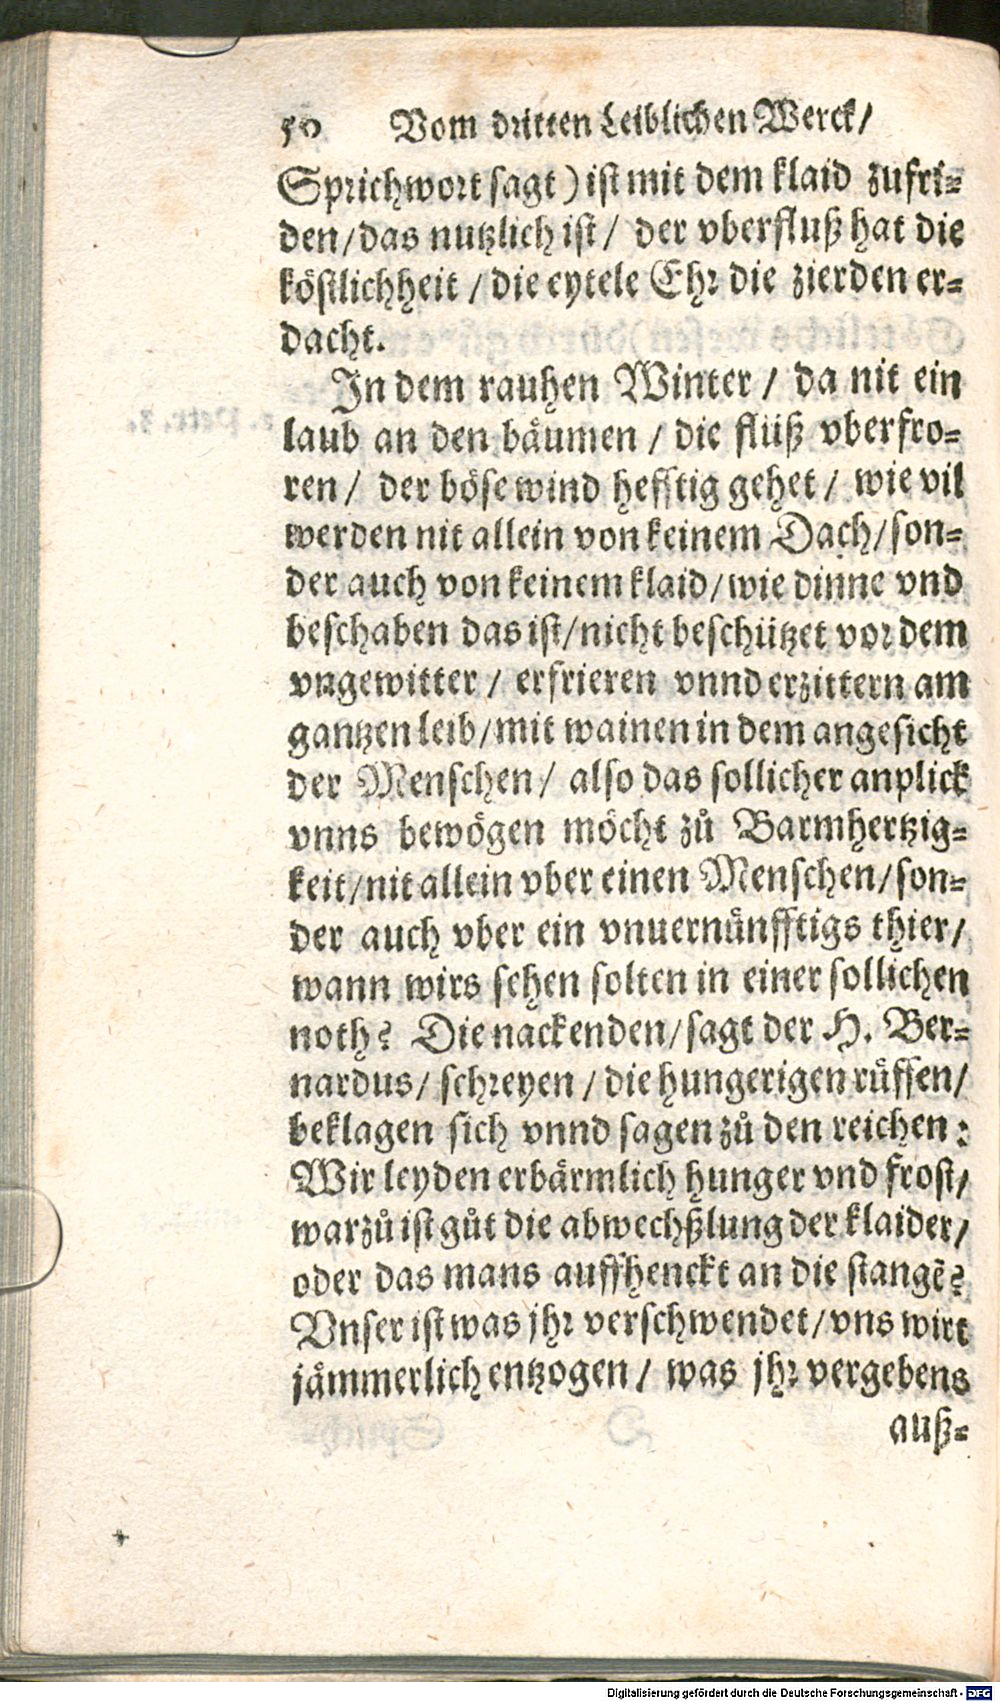 50 Vom dritten Leiblichen Werck/
Sprichwort sagt) ist mit dem klaid zufri-
den/das nutzlich ist/ der vberfluß hat die
köstlichheit/die eytele Ehr die zierden er-
dacht.
In dem rauhen Winter/ da nit ein
laub an den bäumen/ die flüß vberfro-
ren/ der böse wind hefftig gehet/ wie vil
werden nit allein von keinem Dach/son-
der auch von keinem klaid/wie dinne vnd
beschaben das ist/nicht beschützet vor dem
vngewitter/ erfrieren vnnd erzittern am
gantzen leib/mit wainen in dem angesicht
der Menschen/ also das sollicher anplick
vnns bewögen möcht zů Barmhertzig-
keit/nit allein vber einen Menschen/son-
der auch vber ein vnuernünfftigs thier/
wann wirs sehen solten in einer sollichen
noth? Die nackenden/sagt der H. Ber-
nardus/ schreyen/die hungerigen rüffen/
beklagen sich vnnd sagen zů den reichen:
Wir leyden erbärmlich hunger vnd frost/
warzů ist gůt die abwechßlung der klaider/
oder das mans auffhenckt an die stangē?
Vnser ist was jhr verschwendet/vns wirt
jämmerlich entzogen/ was jhr vergebens
auß-
Digitalisierung gefördert durch die Deutsche Forschungsgemeinschaft - DFG